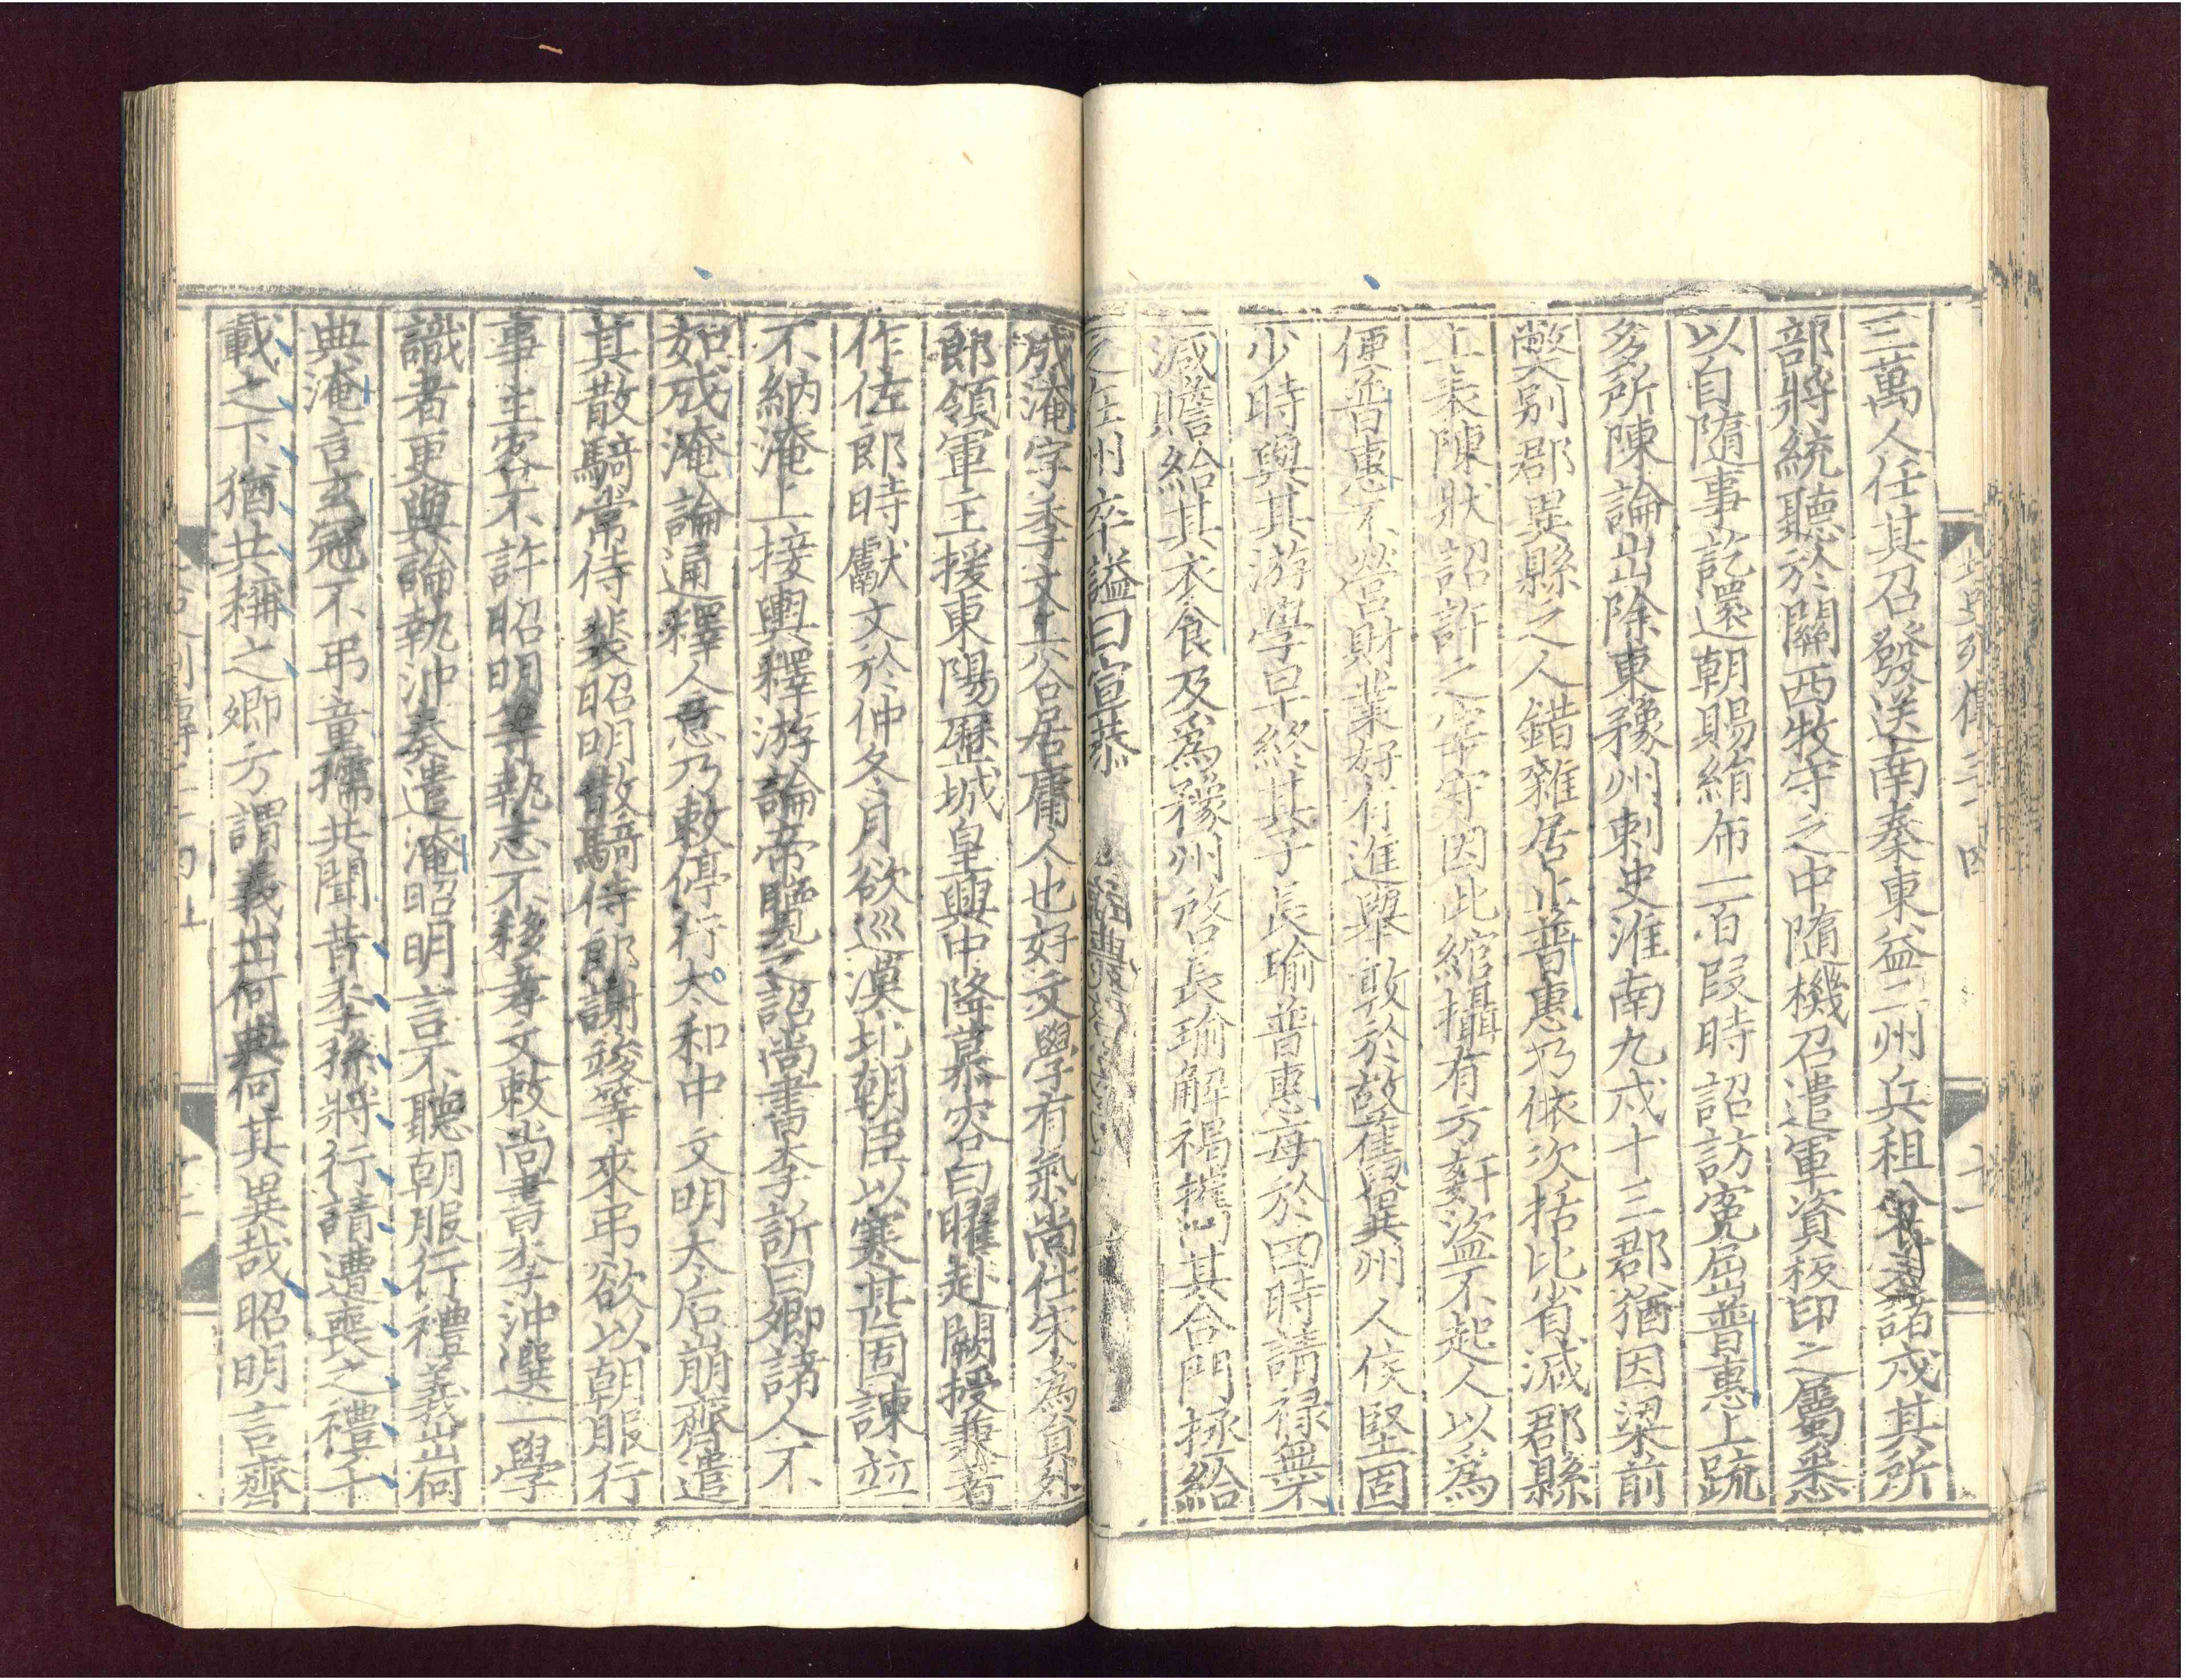 三萬人任其召發送南秦東益二州兵租分付諸戍其所
部將統聽於關西牧守之中隨機召遣軍資板印之屬悉
以自隨事訖還朝賜絹布一百段時詔訪寃屈普惠上疏
多所陳論出除東豫州刺史淮南九戍十三郡猶因梁前
弊別郡異縣之人錯雜居止普惠乃依次括比省減郡縣
上表陳狀詔許之宰守因此綰攝有方姧盜不起人以為
便普惠不營財業好有進舉敦於故舊冀州人侯堅固
少時與其游學早終其子長瑜普惠每於四時請禄無不
減贍給其衣食及爲豫州啓長瑜解褐携其合門拯給
之在州卒謚曰宣恭
成淹字季文上谷居庸人也好文學有氣尚仕宋為員外
郎領軍主援東陽歷城皇興中降慕容白曜赴闕授兼著
作佐郎時獻文於仲冬月欲巡漠北朝臣以寒甚固諫並
不納淹上接輿釋游論帝覽之詔尚書李訢曰卿諸人不
如成淹論通釋人意乃敕停行太和中文明太后崩齊遣
其散騎常侍裴昭明散騎侍郎謝竣等來弔欲以朝服行
事主客不許昭明等執志不移孝文敕尚書李沖選一學
識者更與論執沖奏遣淹昭明言不聽朝服行禮義出何
典淹言玄冠不弔童孺共聞昔季孫將行請遭喪之禮千
載之下猶共稱之卿方謂義出何典何其異哉昭明言齊